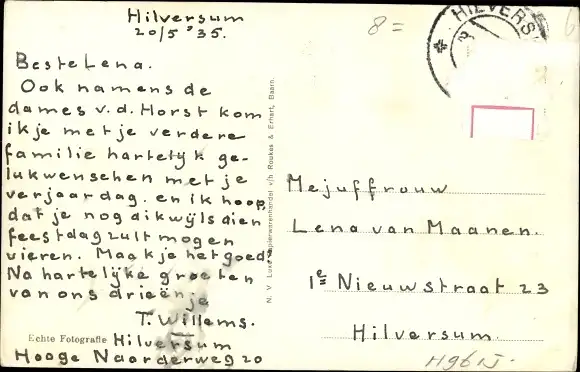 Hilversum
20/5 '35.
Beste Lena.
Ook namens de
dames v.d. Horst kom
ik je met je verdere
familie hartelijk ge-
lukwenschen met je
verjaardag. en ik hoop,
dat je nog dikwijls dien
feestdag zult mogen
vieren. Maak je het goed?
Na hartelijke groeten
van ons drieën, je
T. Willems.
Hilversum
Hooge Naarderweg 20
Echte Fotografie
N. V. Luxe Papierwarenhandel v/h Roukes & Erhart, Baarn.
8=
HILVERS
Mejuffrouw
Lena van Maanen.
1e Nieuwstraat 23
Hilversum.